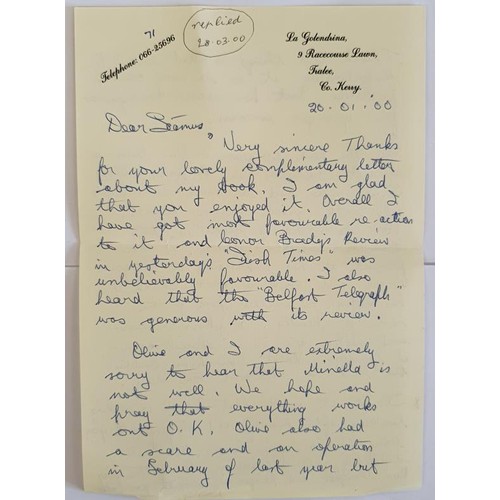 71
Telephone: 066-25696
replied
28.03.00
La Golendrina,
9 Racecourse Lawn,
Tralee,
Co. Kerry.
20.01.00
Dear Séamus,
Very sincere Thanks
for your lovely complimentary letter
about my book. I am glad
that you enjoyed it. Overall I
have got most favourable re-action
to it and Conor Brady's Review
in yesterday's "Irish Times" was
unbelievably favourable. I also
heard that the "Belfast Telegraph"
was generous with its review.
Olive and I are extremely
sorry to hear that Minella is
not well. We hope and
pray that everything works
out O.K. Olive also had
a scare and an operation
in February of last year but